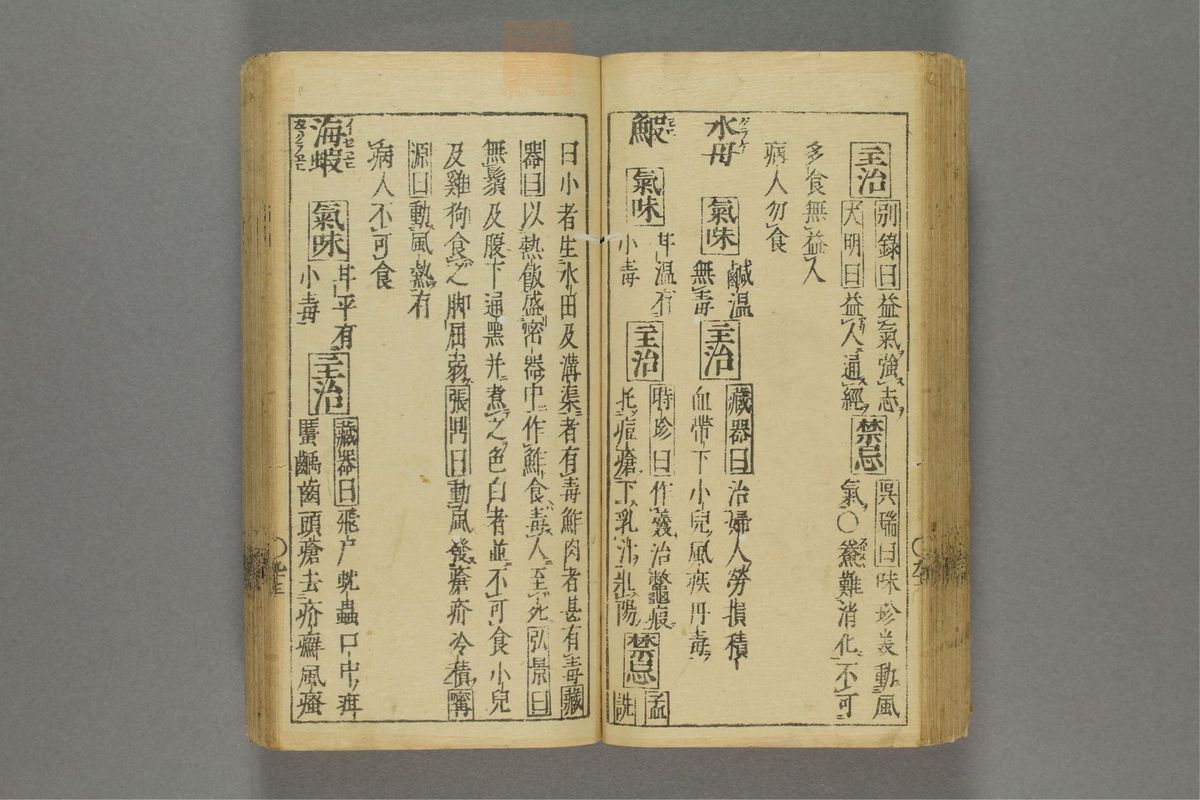 主治 別錄曰益氣強志
大明曰益人通經 禁忌 吳瑞曰味珍美動風
氣〇鮝難消化不可
多食無益人
病人勿食
水母 クラゲ 氣味 鹹溫
無毒 主治 藏器曰治婦人勞損積
血帶下小兒風疾丹毒
鰕 エビ 氣味 甘溫有
小毒 主治 時珍曰作羹治鼈瘕
托痘瘡下乳汁壯陽 禁忌 孟
詵
曰小者生水田及溝渠者有毒鮓肉者甚有毒藏
器曰以熱飯盛密器中作鮓食毒人至死弘景曰
無鬚及腹下通黑并煮之色白者並不可食小兒
及雞狗食之脚屈弱張鼎曰動風發瘡疥冷積甯
源曰動風熱有
病人不可食
海蝦 イセエビ 氣味 甘平有
小毒 主治 藏器曰飛尸蚘蟲口中疳
䘌齲齒頭瘡去疥癬風瘙